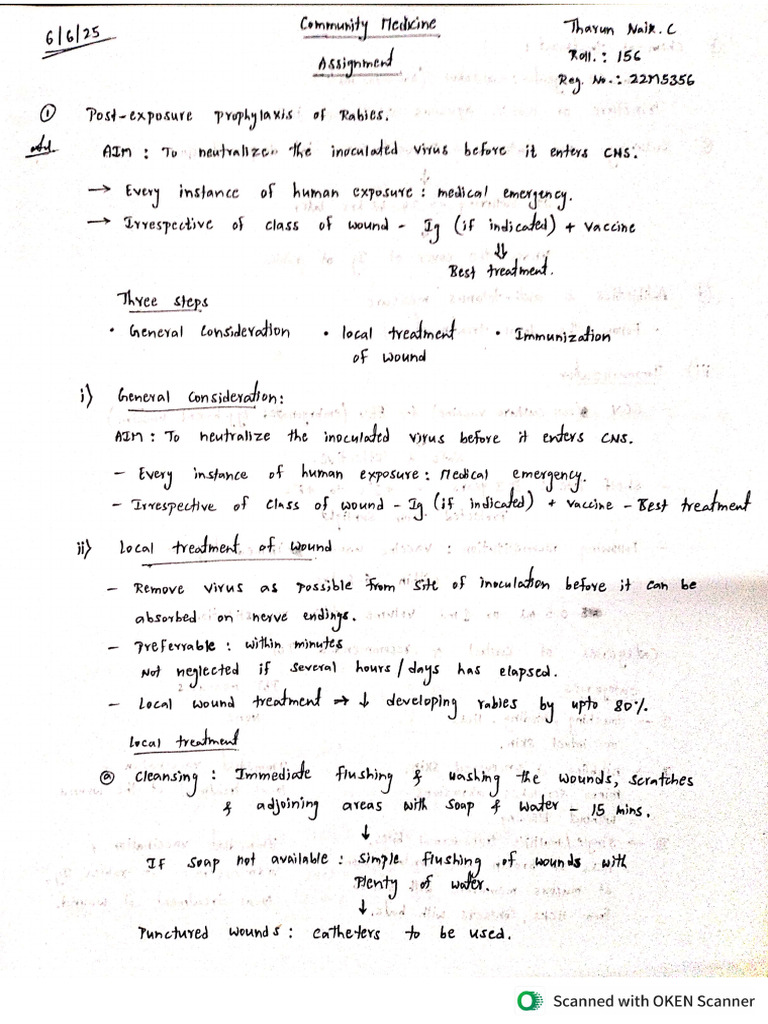 6/6/25
Community Medicine
Assignment
Tharun Naik. C
Roll.: 156
Reg. No.: 22M5356
① Post-exposure prophylaxis of Rabies.
AIM : To neutralize the inoculated virus before it enters CNS.
→ Every instance of human exposure : medical emergency.
→ Irrespective of class of wound - Ig (if indicated) + vaccine
⇓
Best treatment.
Three steps
• General Consideration • local treatment of wound • Immunization
i) General Consideration:
AIM : To neutralize the inoculated virus before it enters CNS.
- Every instance of human exposure : Medical emergency.
- Irrespective of class of wound - Ig (if indicated) + vaccine - Best treatment
ii) Local treatment of wound
- Remove virus as possible from site of inoculation before it can be
absorbed on nerve endings.
- Preferrable : within minutes
Not neglected if several hours/days has elapsed.
- Local wound treatment → ↓ developing rabies by upto 80%.
Local treatment
ⓐ Cleansing : Immediate flushing & washing the wounds, scratches
& adjoining areas with soap & water - 15 mins.
↓
If soap not available : simple flushing of wounds with
Plenty of water.
↓
Punctured wounds : catheters to be used.
Scanned with OKEN Scanner